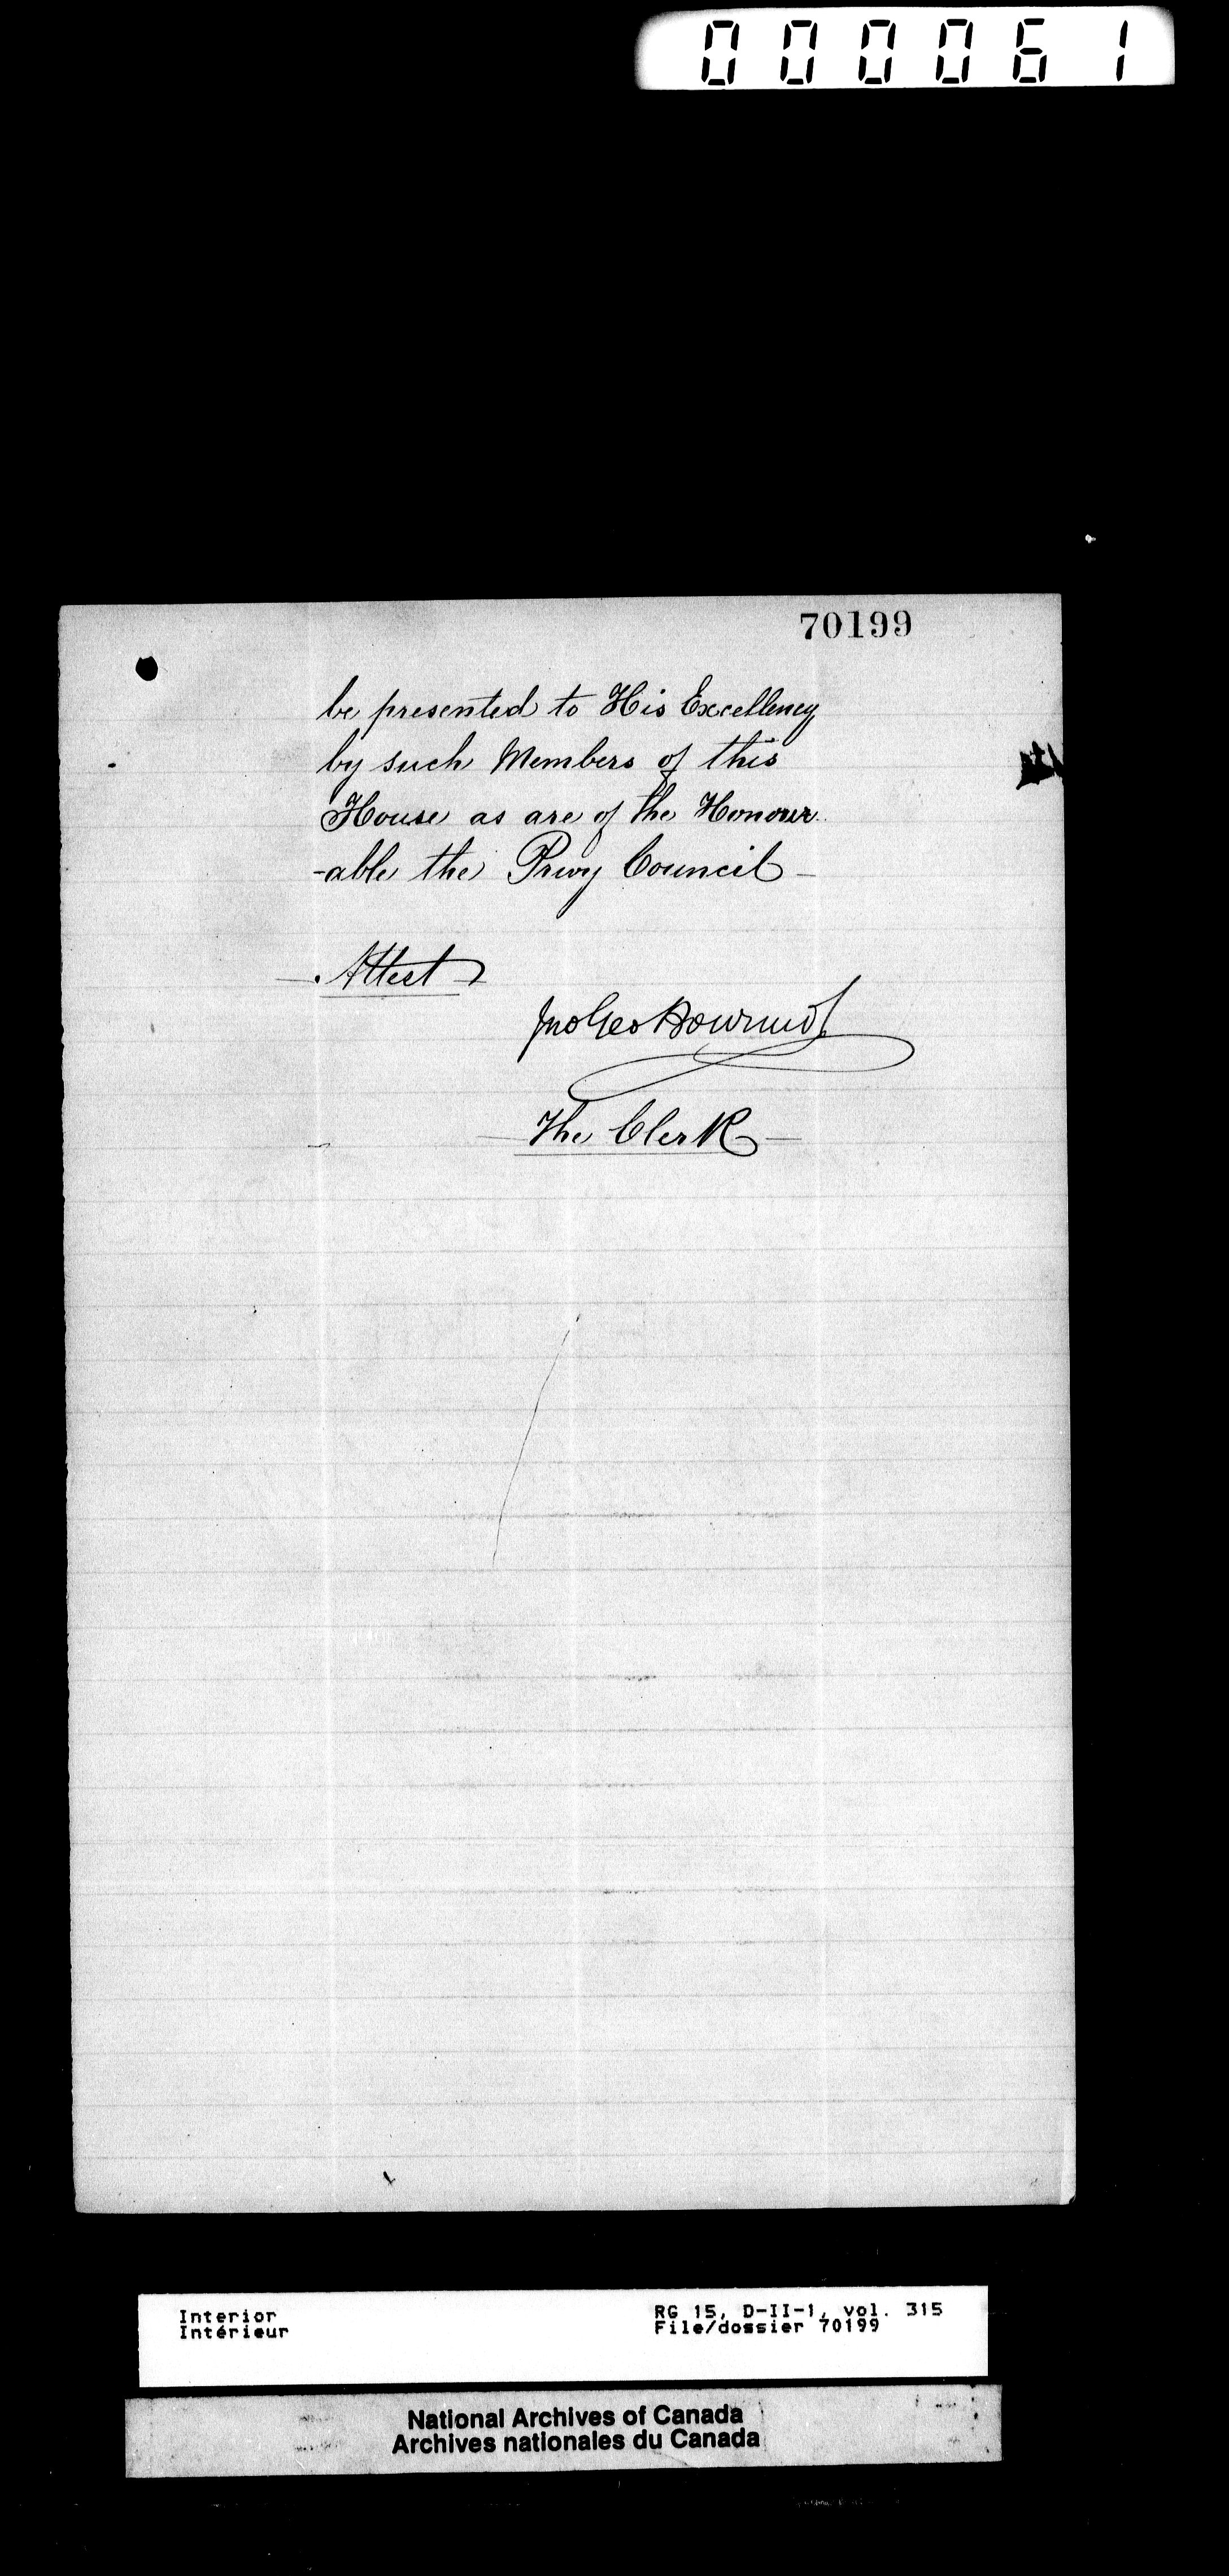 000061
70199
be presented to His Excellency
by such Members of this
House as are of the Honour
-able the Privy Council -
Attest
Jno Geo Bourinot
The Clerk
Interior
Intérieur
RG 15, D-II-1, vol. 315
File/dossier 70199
National Archives of Canada
Archives nationales du Canada